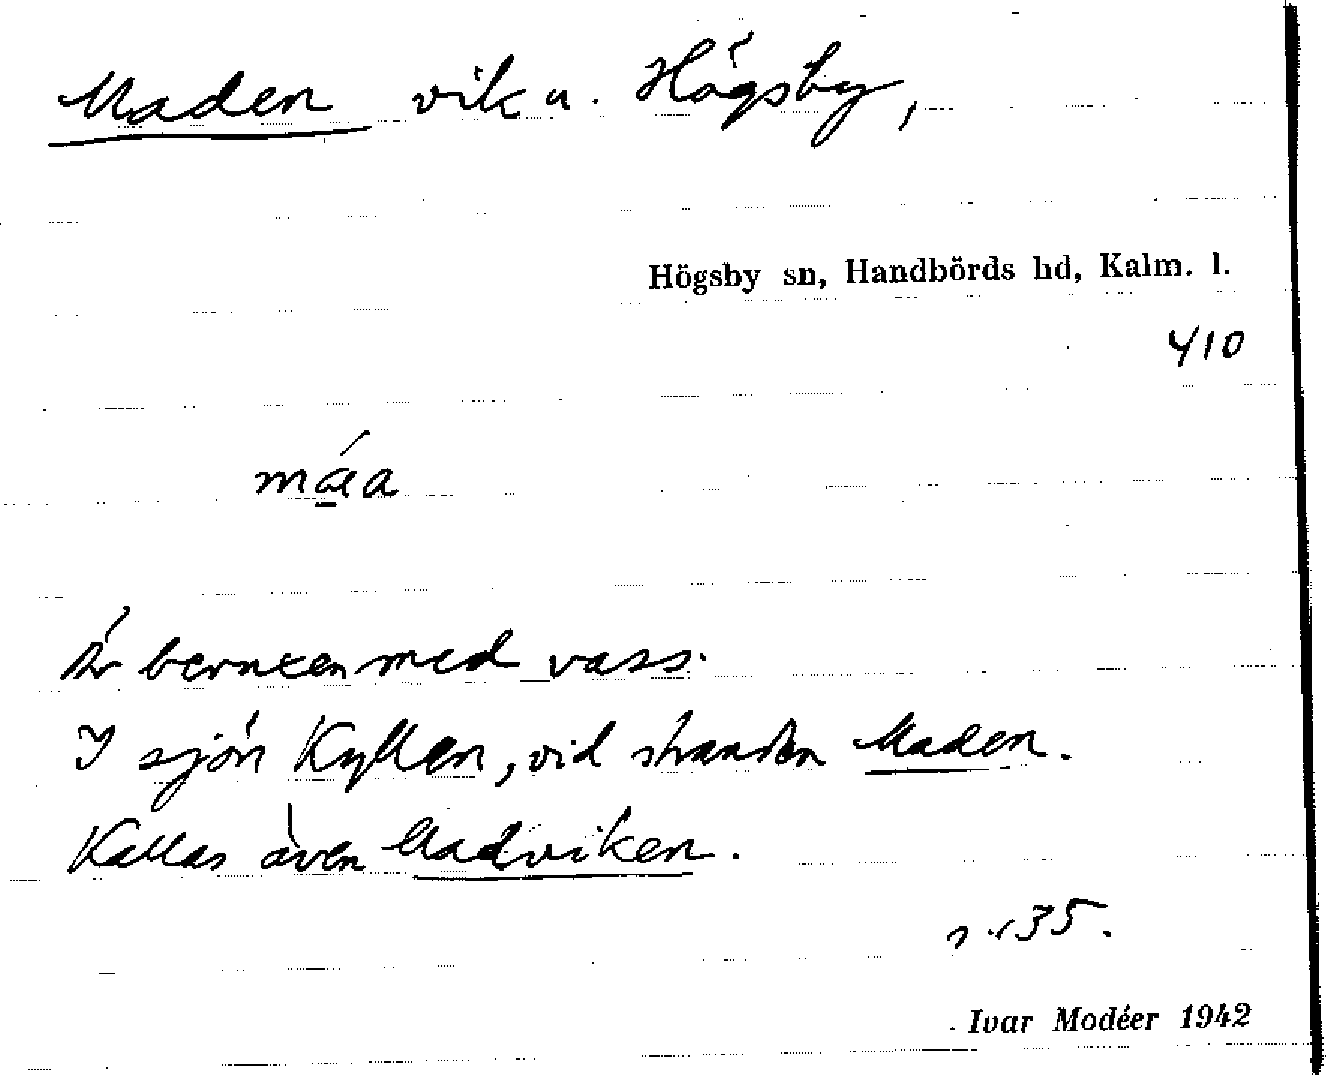 Maden vik u. Högsby,
Högsby sn, Handbörds hd, Kalm. l.
410
Är bevuxen med vass.
I sjön Kyllen, vid stranden Maden.
Kallas även Madviken.
35.
Ivar Modéer 1942